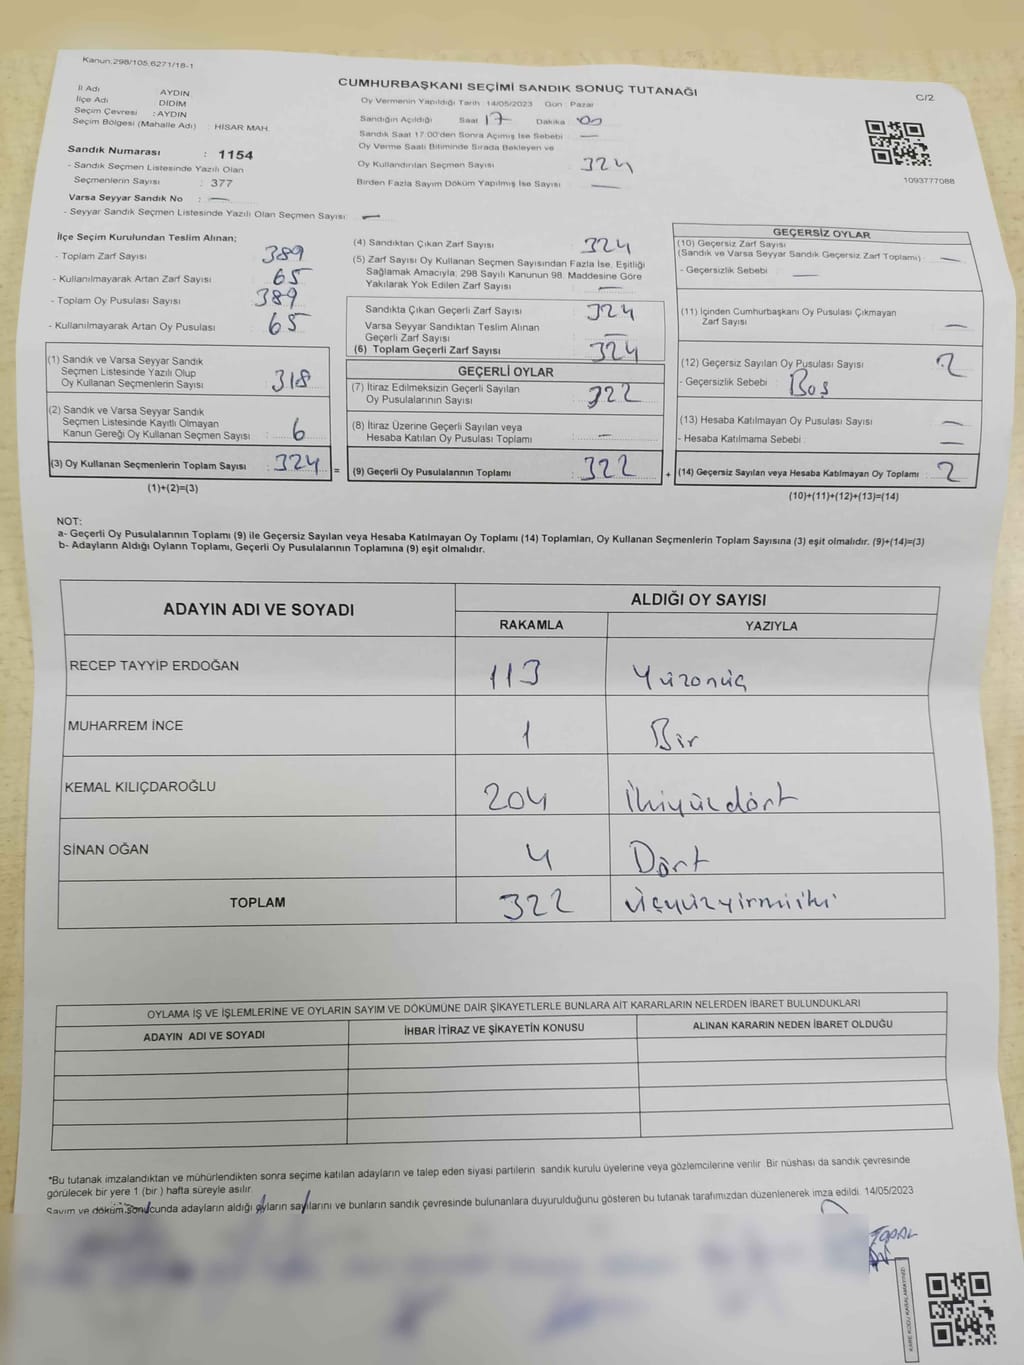 Kanun.298/105,6271/18-1
CUMHURBAŞKANI SEÇİMİ SANDIK SONUÇ TUTANAĞI
C/2
İl Adı : AYDIN
İlçe Adı : DİDİM
Seçim Çevresi : AYDIN
Seçim Bölgesi (Mahalle Adı) : HİSAR MAH.
Sandık Numarası : 1154
- Sandık Seçmen Listesinde Yazılı Olan
Seçmenlerin Sayısı : 377
Varsa Seyyar Sandık No : —
- Seyyar Sandık Seçmen Listesinde Yazılı Olan Seçmen Sayısı: —
Oy Vermenin Yapıldığı Tarih 14/05/2023 Gün : Pazar
Sandığın Açıldığı Saat 17 Dakika : 00
Sandık Saat 17:00'den Sonra Açımış İse Sebebi : —
Oy Verme Saati Bitiminde Sırada Bekleyen ve
Oy Kullandırılan Seçmen Sayısı : 324
Birden Fazla Sayım Döküm Yapılmış İse Sayısı : —
1093777088
İlçe Seçim Kurulundan Teslim Alınan;
- Toplam Zarf Sayısı : 389
- Kullanılmayarak Artan Zarf Sayısı : 65
- Toplam Oy Pusulası Sayısı : 389
- Kullanılmayarak Artan Oy Pusulası : 65
(1) Sandık ve Varsa Seyyar Sandık
Seçmen Listesinde Yazılı Olup
Oy Kullanan Seçmenlerin Sayısı : 318
(2) Sandık ve Varsa Seyyar Sandık
Seçmen Listesinde Kayıtlı Olmayan
Kanun Gereği Oy Kullanan Seçmen Sayısı : 6
(3) Oy Kullanan Seçmenlerin Toplam Sayısı : 324
(1)+(2)=(3)
=
(4) Sandıktan Çıkan Zarf Sayısı : 324
(5) Zarf Sayısı Oy Kullanan Seçmen Sayısından Fazla İse, Eşitliği
Sağlamak Amacıyla, 298 Sayılı Kanunun 98. Maddesine Göre
Yakılarak Yok Edilen Zarf Sayısı : —
Sandıkta Çıkan Geçerli Zarf Sayısı : 324
Varsa Seyyar Sandıktan Teslim Alınan
Geçerli Zarf Sayısı : —
(6) Toplam Geçerli Zarf Sayısı : 324
GEÇERLİ OYLAR
(7) İtiraz Edilmeksizin Geçerli Sayılan
Oy Pusulalarının Sayısı : 322
(8) İtiraz Üzerine Geçerli Sayılan veya
Hesaba Katılan Oy Pusulası Toplamı : —
(9) Geçerli Oy Pusulalarının Toplamı : 322
+
GEÇERSİZ OYLAR
(10) Geçersiz Zarf Sayısı
(Sandık ve Varsa Seyyar Sandık Geçersiz Zarf Toplamı) : —
- Geçersizlik Sebebi : —
(11) İçinden Cumhurbaşkanı Oy Pusulası Çıkmayan
Zarf Sayısı : —
(12) Geçersiz Sayılan Oy Pusulası Sayısı : 2
- Geçersizlik Sebebi : Boş
(13) Hesaba Katılmayan Oy Pusulası Sayısı : —
- Hesaba Katılmama Sebebi : —
(14) Geçersiz Sayılan veya Hesaba Katılmayan Oy Toplamı : 2
(10)+(11)+(12)+(13)=(14)
NOT:
a- Geçerli Oy Pusulalarının Toplamı (9) ile Geçersiz Sayılan veya Hesaba Katılmayan Oy Toplamı (14) Toplamları, Oy Kullanan Seçmenlerin Toplam Sayısına (3) eşit olmalıdır. (9)+(14)=(3)
b- Adayların Aldığı Oyların Toplamı, Geçerli Oy Pusulalarının Toplamına (9) eşit olmalıdır.
ADAYIN ADI VE SOYADI
ALDIĞI OY SAYISI
RAKAMLA YAZIYLA
RECEP TAYYİP ERDOĞAN 113 Yüzonüç
MUHARREM İNCE 1 Bir
KEMAL KILIÇDAROĞLU 204 İkiyüzdört
SİNAN OĞAN 4 Dört
TOPLAM 322 üçyüzyirmiiki
OYLAMA İŞ VE İŞLEMLERİNE VE OYLARIN SAYIM VE DÖKÜMÜNE DAİR ŞİKAYETLERLE BUNLARA AİT KARARLARIN NELERDEN İBARET BULUNDUKLARI
ADAYIN ADI VE SOYADI İHBAR İTİRAZ VE ŞİKAYETİN KONUSU ALINAN KARARIN NEDEN İBARET OLDUĞU
*Bu tutanak imzalandıktan ve mühürlendikten sonra seçime katılan adayların ve talep eden siyasi partilerin sandık kurulu üyelerine veya gözlemcilerine verilir. Bir nüshası da sandık çevresinde
görülecek bir yere 1 (bir ) hafta süreyle asılır.
Sayım ve döküm sonucunda adayların aldığı oyların sayılarını ve bunların sandık çevresinde bulunanlara duyurulduğunu gösteren bu tutanak tarafımızdan düzenlenerek imza edildi. 14/05/2023
TOPAL
KARE KODU KARALAMAYINIZ!